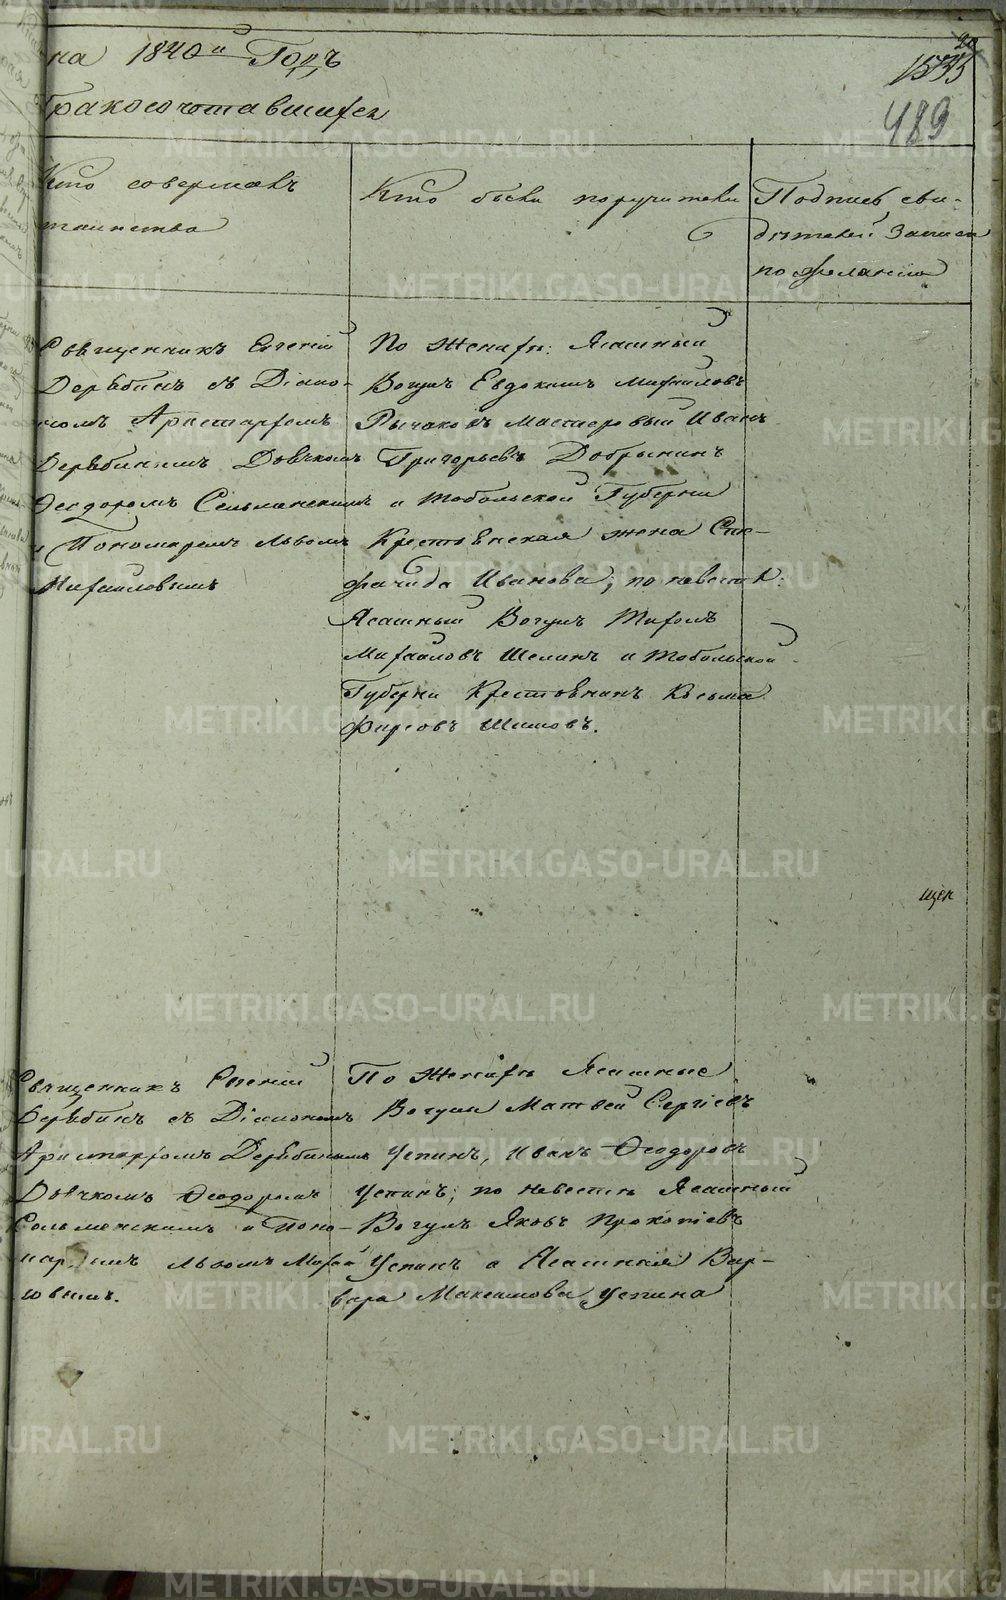 на 1840й Годъ
20
1535
489
бракосочетавшихся
Кто совершалъ
таинство
Кто были поручители
Подпись сви-
дѣтелей записи
по желанію
Священникъ Евгеній
Дерябинъ съ Діако-
номъ Аристархомъ
Дерябинымъ Дьячкомъ
Ѳеодоромъ Сельменскимъ
и Пономаремъ Львомъ
Михайловымъ
По женихѣ: Ясашный
Вогулъ Евдокимъ Михайловъ
Рычковъ Мастеровый Иванъ
Григорьевъ Добрынинъ
и Тобольской Губерніи
Крестьянская жена Сте-
фанида Иванова; по невестѣ:
Ясашный Вогулъ Тихонъ
Михайловъ Шешинъ и Тобольской
Губерни Крестьянинъ Козьма
Фирсовъ Шишовъ.
щек
Священникъ Евгеній
Дерябинъ съ Діакономъ
Аристархомъ Дерябинымъ
Дьячкомъ Ѳеодоромъ
Сельменскимъ и Поно-
маремъ Львомъ Михай
ловымъ.
По женихѣ Ясашные
Вогулы Матвей Сергіевъ
Успинъ, Иванъ Ѳеодоровъ
Успинъ; по невестѣ Ясашный
Вогулъ Яковъ Прокопіевъ
Успинъ и Ясашная Вар-
вара Максимова Успина
METRIKI.GASO-URAL.RU